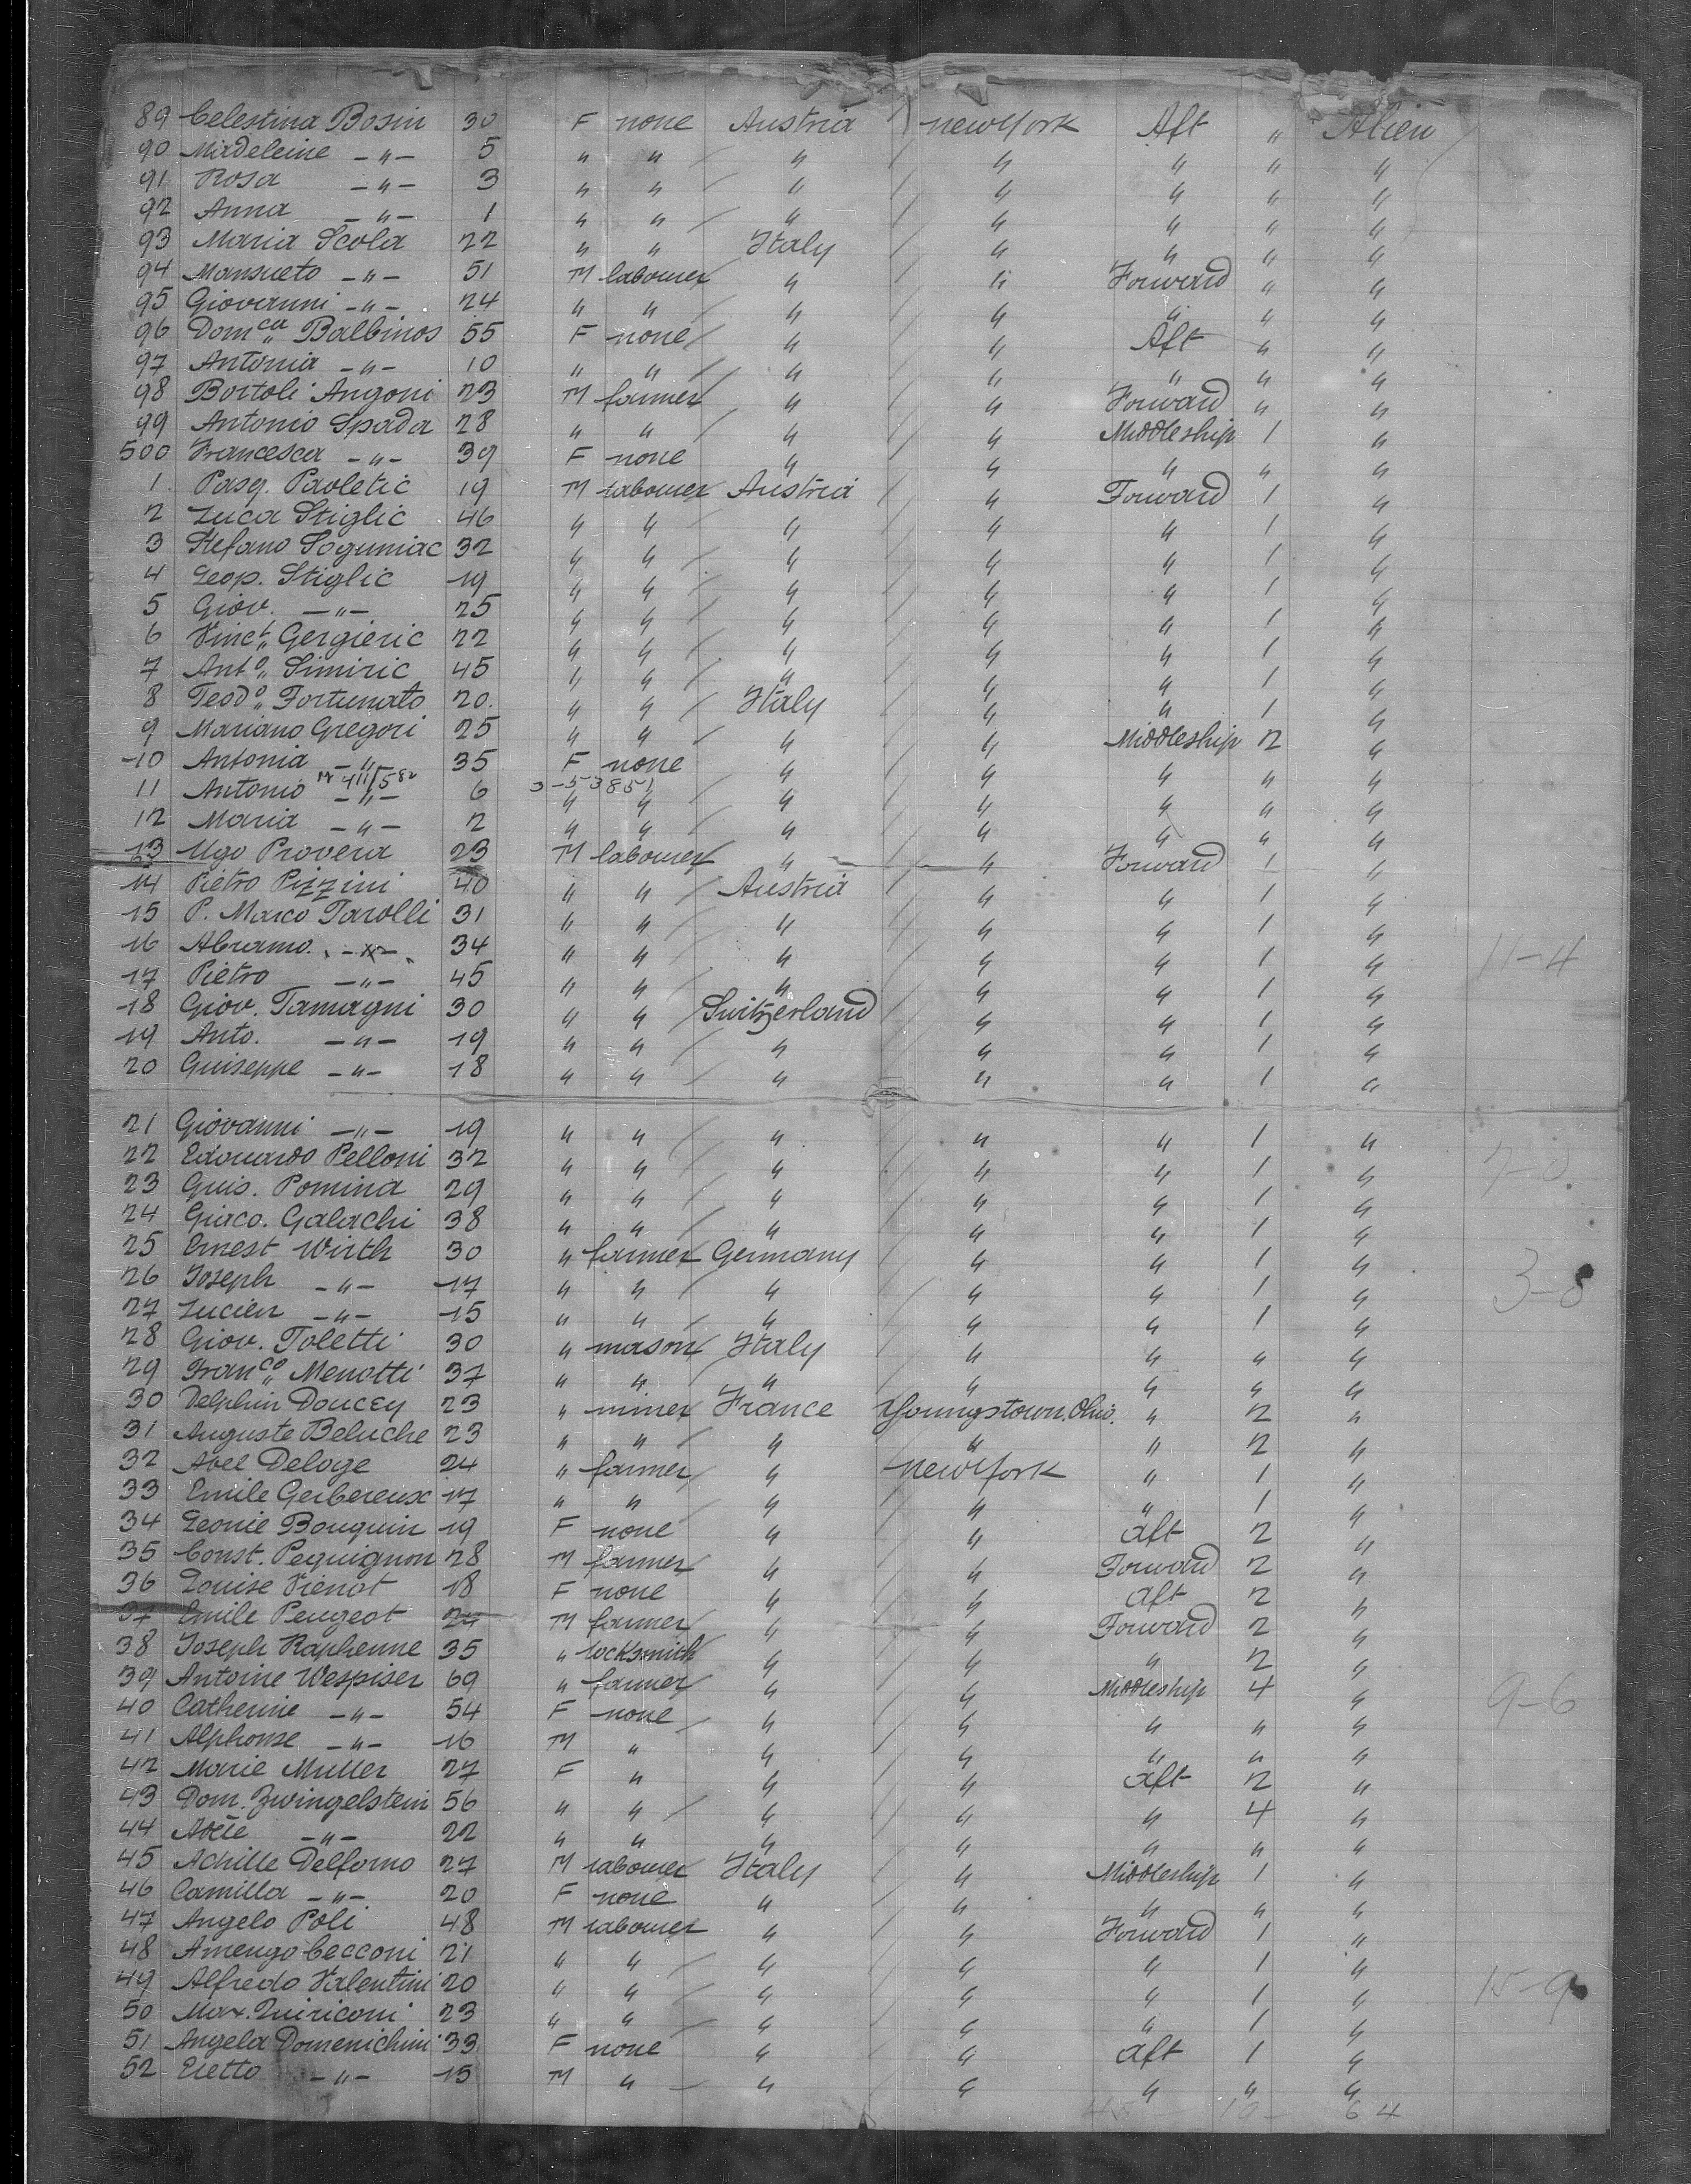 89 Celestina Bosin 30 F none Austria New York Aft " Alien
90 Madeleine -"- 5 " " " " " " "
91 Rosa -"- 3 " " " " " " "
92 Anna -"- 1 " " " " " " "
93 Maria Scola 22 " " Italy " " " "
94 Mansueto -"- 51 M labourer " " Forward " "
95 Giovanni -"- 24 " " " " " " "
96 Dom.ca Balbinos 55 F none " " Aft " "
97 Antonia -"- 10 " " " " " " "
98 Bortoli Angoni 23 M farmer " " Forward " "
99 Antonio Spada 28 " " " " Middleship 1 "
500 Francesca -"- 39 F none " " " " "
1 Pasq. Paoletic 19 M labourer Austria " Forward 1 "
2 Luca Stiglic 46 " " " " " 1 "
3 Stefano Soguniac 32 " " " " " 1 "
4 Leop. Stiglic 19 " " " " " 1 "
5 Giov. -"- 25 " " " " " 1 "
6 Vinc. Gergieric 22 " " " " " 1 "
7 Anto. Simiric 45 " " " " " 1 "
8 Teodo. Fortunato 20. " " Italy " " 1 "
9 Mariano Gregori 25 " " " " Middleship 2 "
10 Antonia -"- 35 F none " " " " "
11 Antonio -"- 6 " " " " " " "
12 Maria -"- 2 " " " " " " "
13 Ugo Provera 23 M labourer " " Forward 1 "
14 Pietro Pizzini 40 " " Austria " " 1 "
15 P. Marco Tarolli 31 " " " " " 1 "
16 Abramo. -"- 34 " " " " " 1 " 11-4
17 Pietro -"- 45 " " " " " 1 "
18 Giov. Tamagni 30 " " Switzerland " " 1 "
19 Anto. -"- 19 " " " " " 1 "
20 Guiseppe -"- 18 " " " " " 1 "
21 Giovanni -"- 19 " " " " " 1 "
22 Edouardo Pelloni 32 " " " " " 1 "
23 Guis. Pomina 29 " " " " " 1 "
24 Giaco. Galachi 38 " " " " " 1 "
25 Ernest Wirth 30 " farmer Germany " " 1 "
26 Joseph -"- 17 " " " " " 1 " 3-8
27 Lucien -"- 15 " " " " " 1 "
28 Giov. Toletti 30 " mason Italy " " " "
29 Franco. Menotti 37 " " " " " " "
30 Delphin Doucey 23 " miner France Youngstown. Ohio. " 2 "
31 Auguste Beluche 23 " " " " " 2 "
32 Abel Deloge 24 " farmer " New York " 1 "
33 Emile Gerbereux 17 " " " " " 1 "
34 Leonie Bouquin 19 F none " " Aft 2 "
35 Const. Pequignon 28 M farmer " " Forward 2 "
36 Louise Vienot 18 F none " " Aft 2 "
37 Emile Peugeot 24 M farmer " " Forward 2 "
38 Joseph Raphenne 35 " locksmith " " " 2 "
39 Antoine Wespiser 69 " farmer " " Middleship 4 "
40 Catherine -"- 54 F none " " " " " 9-6
41 Alphonse -"- 16 M " " " " " "
42 Marie Muller 27 F " " " Aft 2 "
43 Dom. Zwingelstein 56 " " " " " 4 "
44 Adèle -"- 22 " " " " " " "
45 Achille Delforno 27 M labourer Italy " Middleship 1 "
46 Camilla -"- 20 F none " " " " "
47 Angelo Poli 48 M labourer " " Forward 1 "
48 Amengo Cecconi 21 " " " " " 1 "
49 Alfredo Valentini 20 " " " " " 1 " 15-9
50 Max. Quiriconi 23 " " " " " 1 "
51 Angela Domenichini 33 F none " " Aft 1 "
52 Eletto -"- 15 M " " " " " "